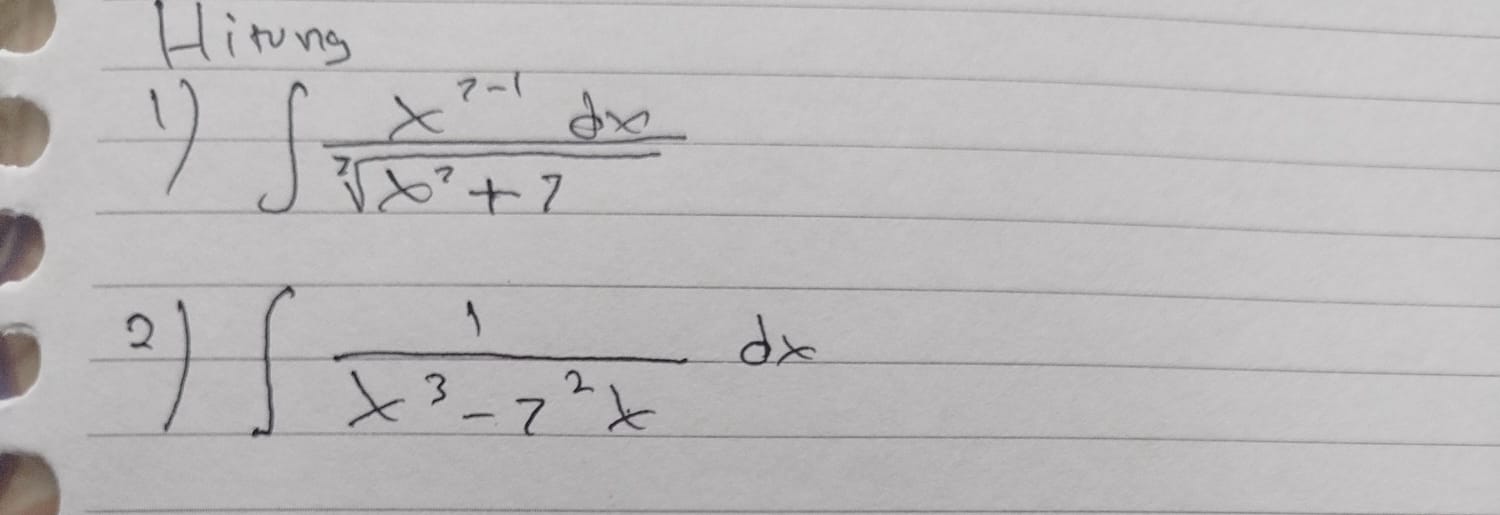 Hitung
1) ∫ x^(7-1) dx / ⁷√(x⁷ + 7)
2) ∫ 1 / (x³ - 7²x) dx